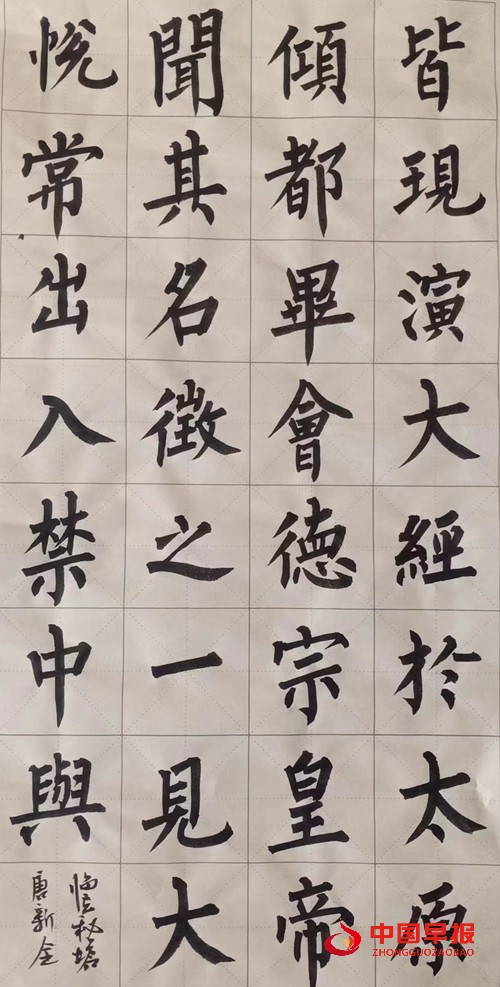 皆現演大經於太原
傾都畢會德宗皇帝
聞其名徵之一見大
悅常出入禁中與
临玄秘塔
唐新全
中国早报
ZHONGGUOZAOBAO